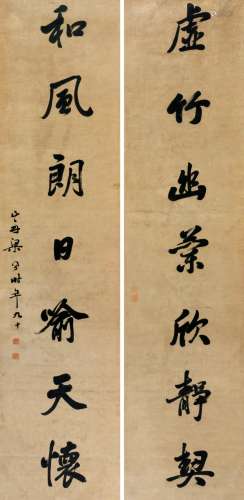 虛竹幽蘭欣靜契
和風朗日喻天懷
山舟梁同書年九十